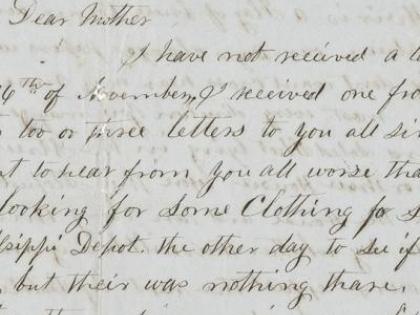 Dear Mother
I have not received a
6th of November, I received one fro
too or three letters to you all sin
to hear from you all worse tha
looking for some Clothing for s
sippi Depot. the other day to see if
but their was nothing thare,